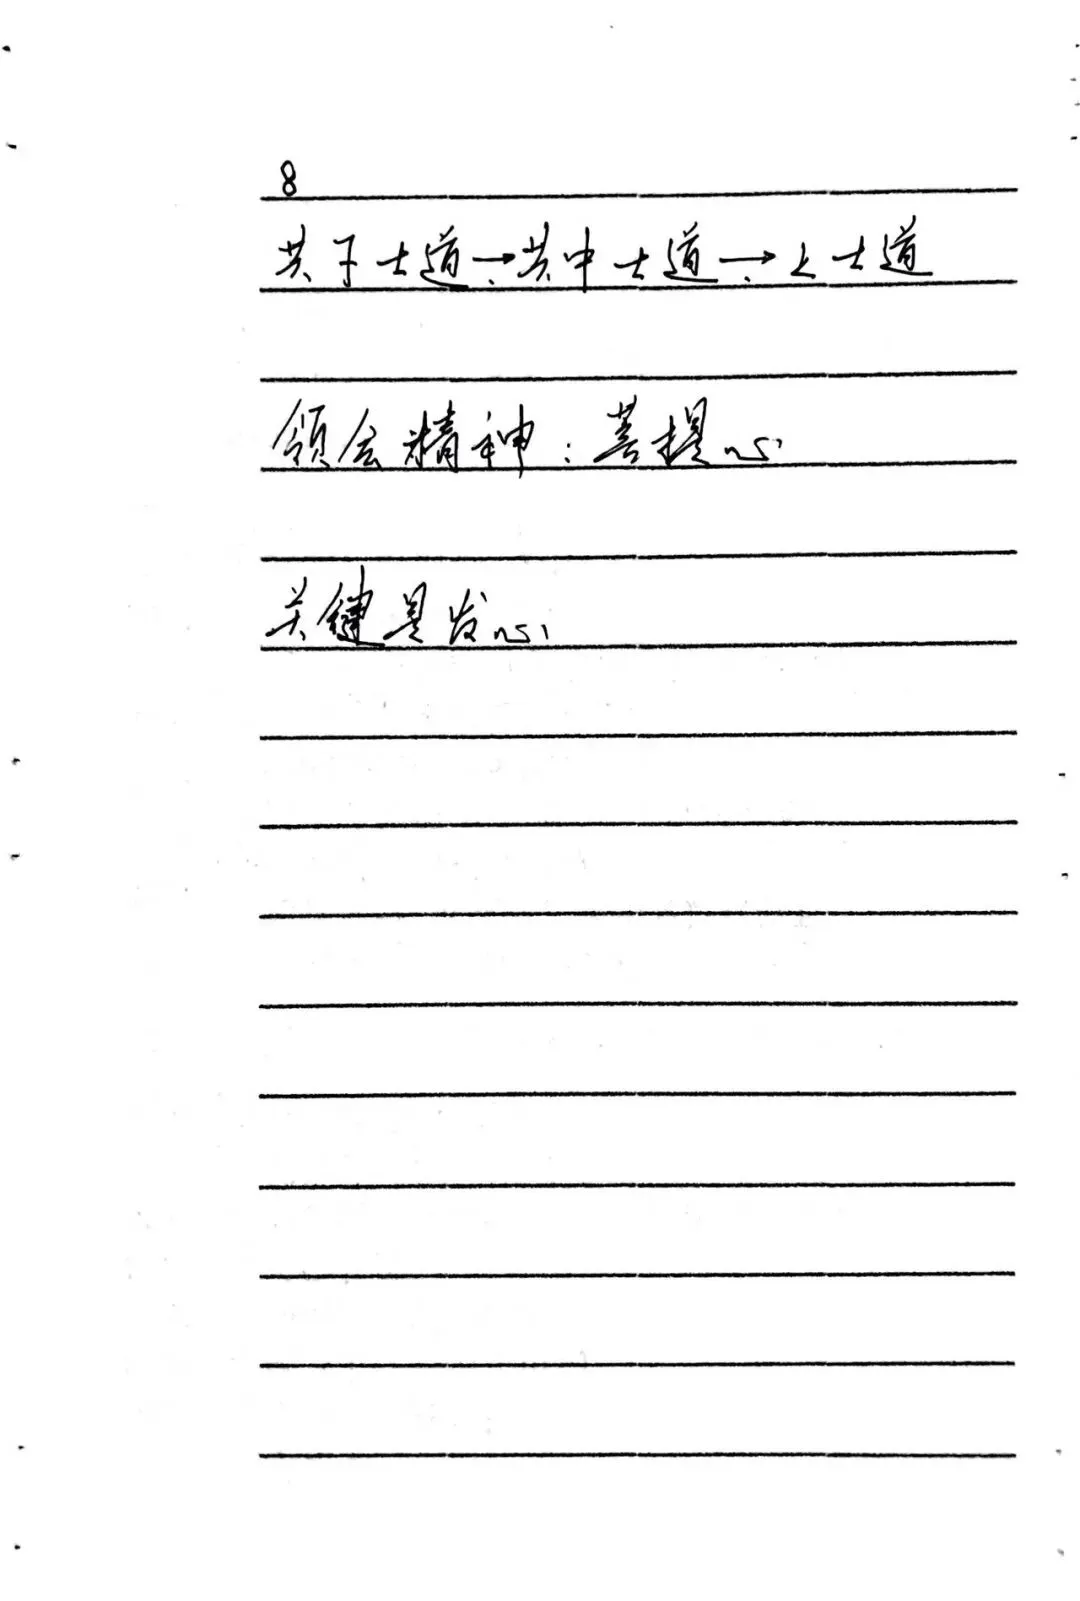 8
共下士道→共中士道→上士道
领会精神:菩提心
关键是发心